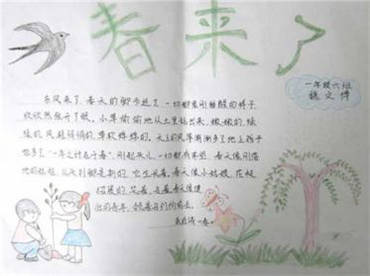 春来了
一年级六班
东风来了，春天的脚步近了。一切都象刚睡醒的样子，
欣欣然张开了眼。小草偷偷地从土里钻出来，嫩嫩的，绿
绿的。风轻悄悄的，草软绵绵的。天上的风筝渐渐多了，地上孩子
也多了。"一年之计在于春"，刚起头儿，一切都有希望。春天像刚落
地的娃娃，从头到脚是新的，它生长着。春天像小姑娘，花枝
招展的，笑着，走着。春天像健
的青年，领着我们向前去。